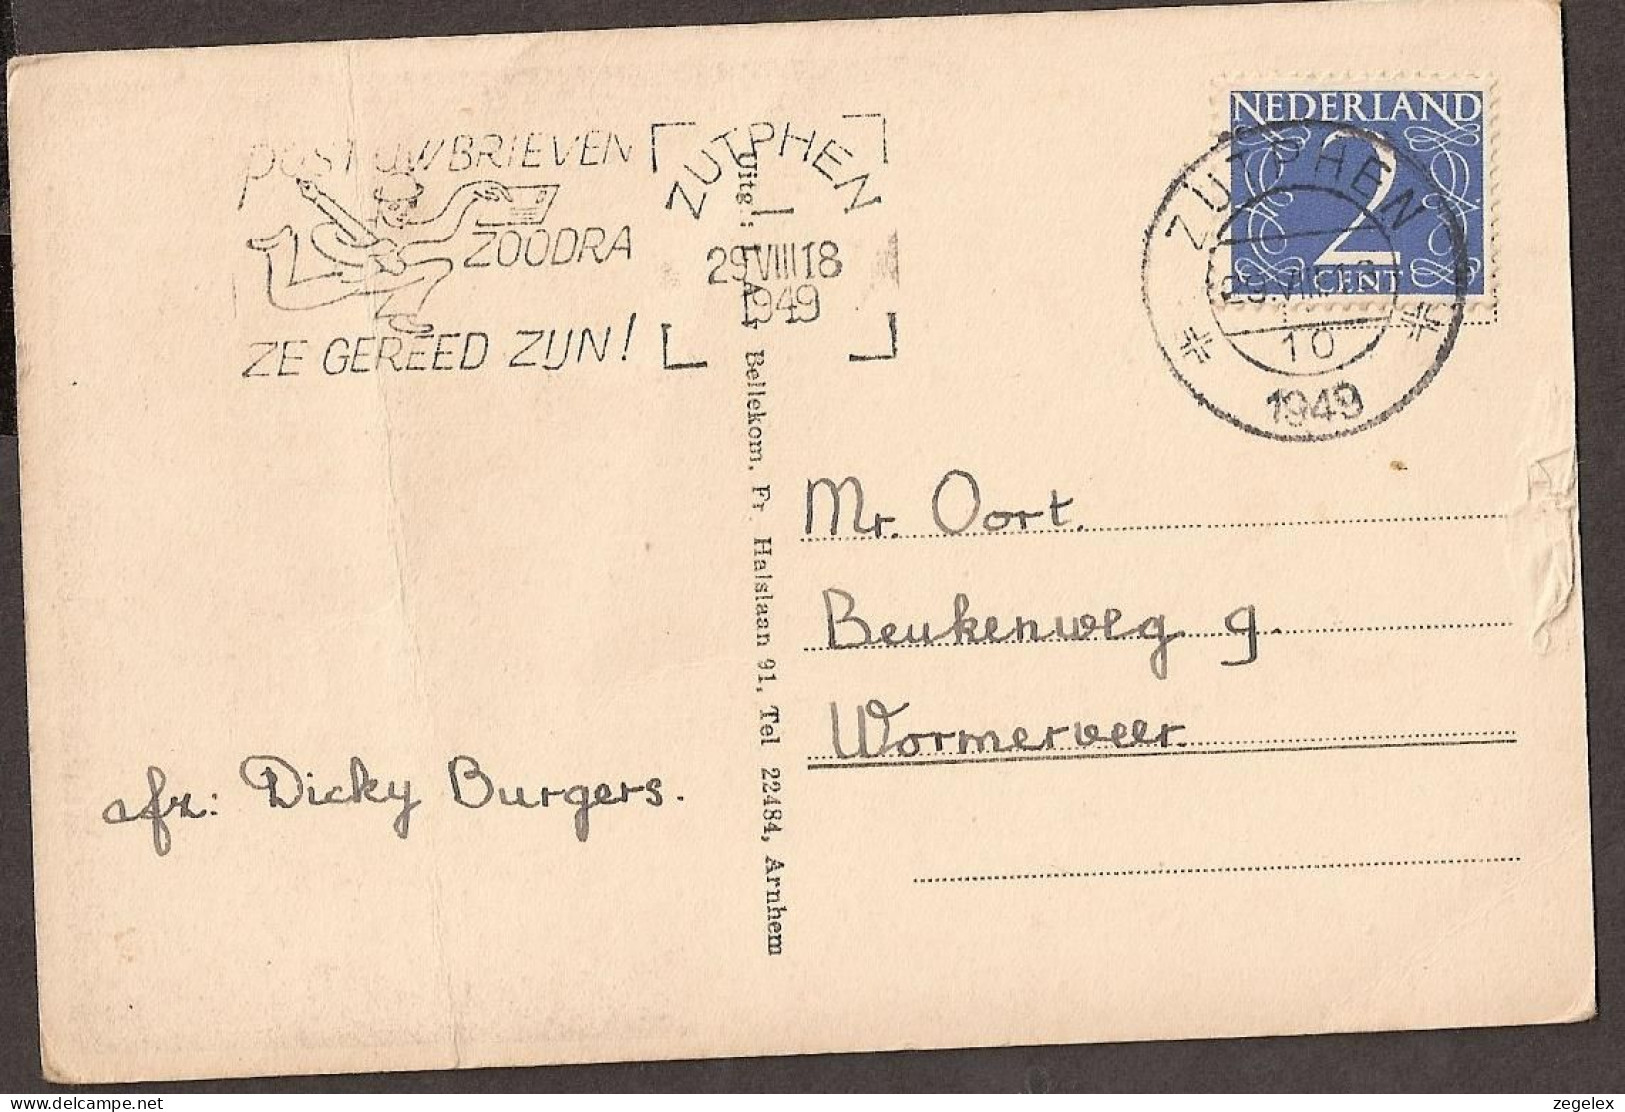 post uw BRIEVEN
ZOODRA
ZE GEREED ZIJN!
ZUTPHEN
29 VIII 18
1949
NEDERLAND
2
CENT
ZUTPHEN
29.VIII
10
1949
Uitg.: I. A. Bellekom, Fr. Halslaan 91, Tel 22484, Arnhem
Mr. Oort.
Beukenweg 9.
Wormerveer.
afz: Dicky Burgers.
delcampe.net
zegelex